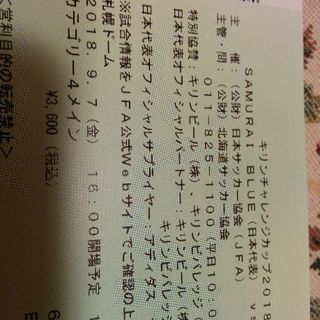 キリンチャレンジカップ2018
SAMURAI BLUE(日本代表) vs
主 催:(公財)日本サッカー協会(JFA)
主管・問:(公財)北海道サッカー協会
011-825-1100(平日10:0
特別協賛:キリンビール(株)、キリンビバレッジ(
日本代表オフィシャルパートナー:キリンビール(株
キリンビバレッジ
日本代表オフィシャルサプライヤー:アディダス
※試合情報をJFA公式Webサイトでご確認の上
札幌ドーム
2018.9.7(金) 16:00開場予定 1
カテゴリー4メイン
¥3,600(税込)
<営利目的の転売禁止>